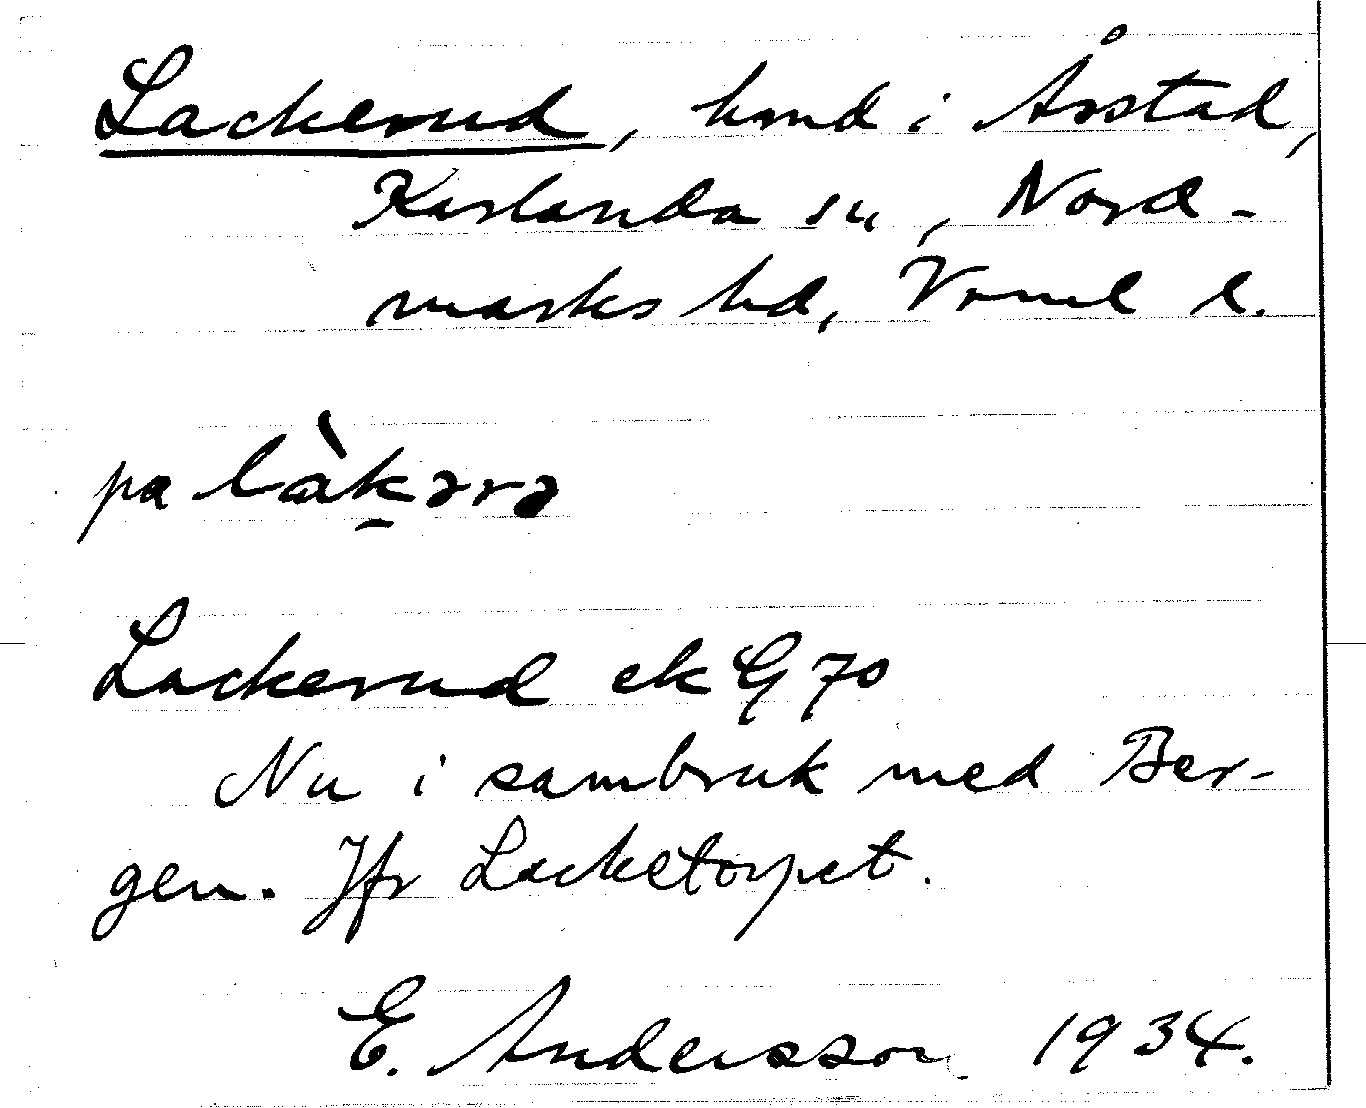 Lackerud, hmd i Årstad,
Karlanda sn, Nord-
marks hd, Vrml l.
pa làk̠ərə
Lackerud ek G 70
Nu i sambruk med Ber-
gen. Jfr Lacketorpet.
E. Andersson 1934.